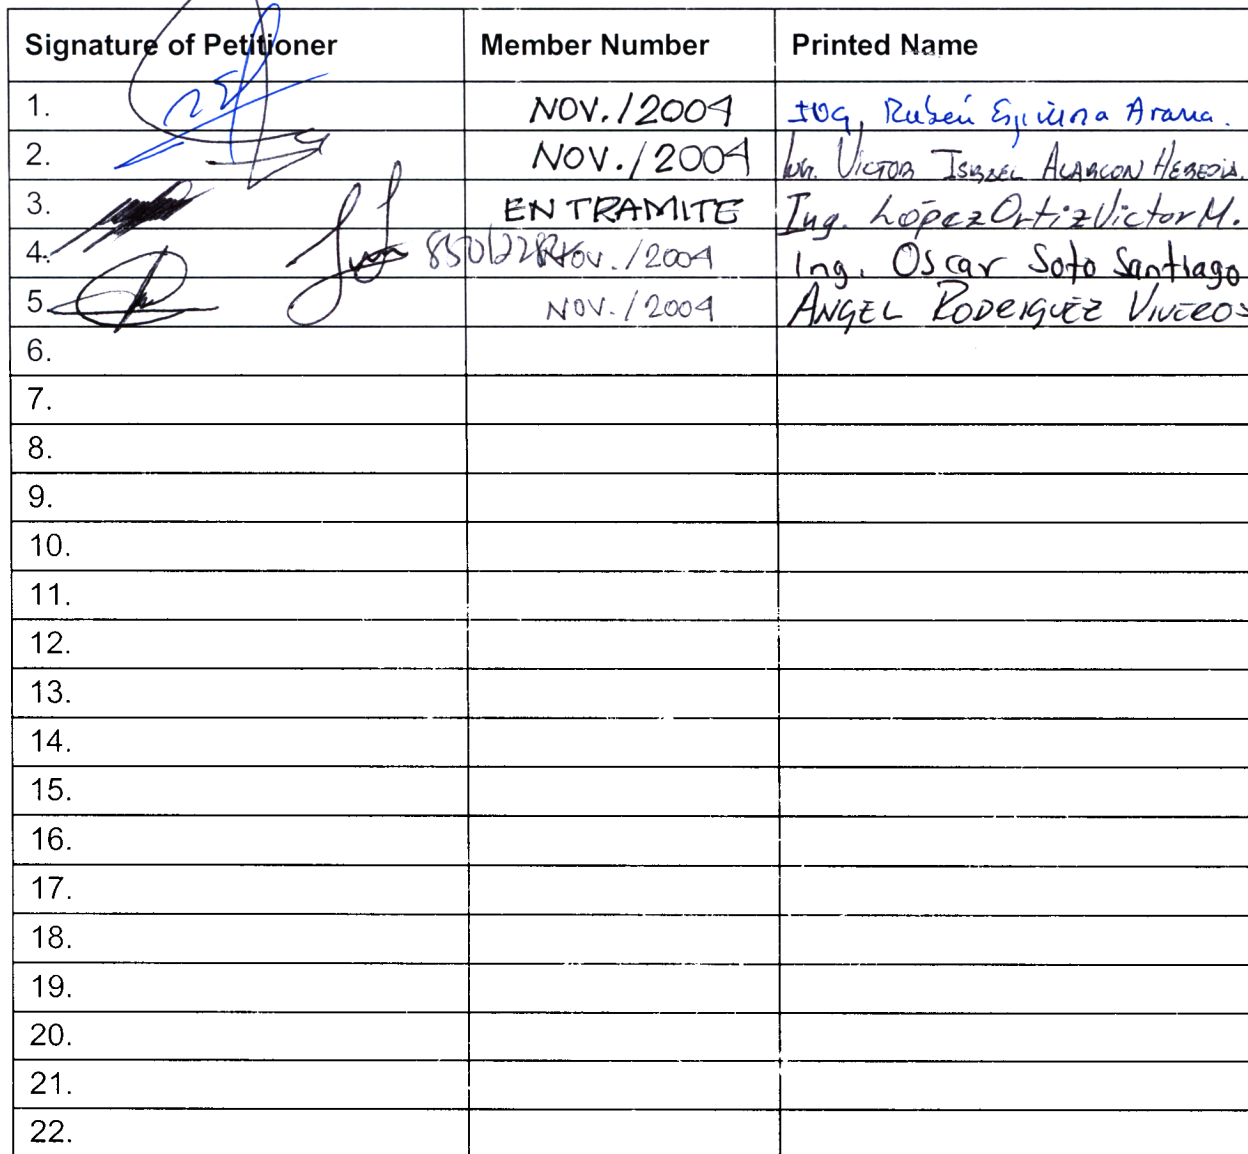 Signature of Petitioner Member Number Printed Name
1. NOV./2004 Ing. Rubén Arana.
2. NOV./2004 Ing. VICTOR ISRAEL ALARCON HEREDIA.
3. EN TRAMITE Ing. López Ortiz Victor M.
4. NOV./2004 Ing. Oscar Soto Santiago
5. NOV./2004 ANGEL RODRIGUEZ VIVEROS
6.
7.
8.
9.
10.
11.
12.
13.
14.
15.
16.
17.
18.
19.
20.
21.
22.